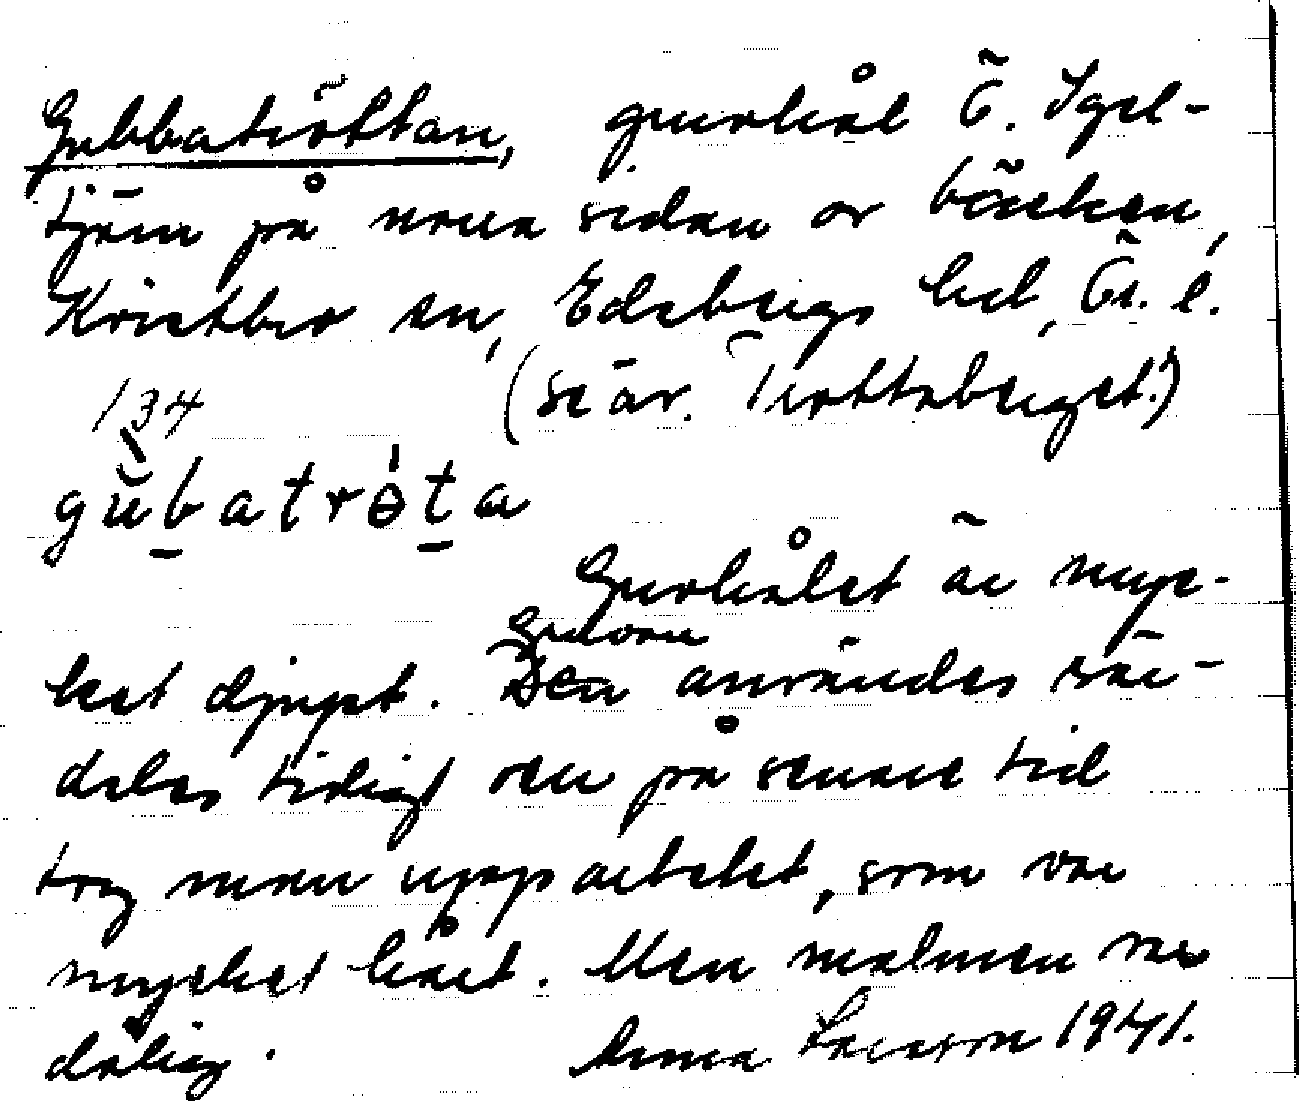 Gubbatröttan, gruvhål Ö. Igel-
tjärn på norra sidan av bäcken,
Kristber sn, Edebergs hd, Ör. l.
(se äv. Trottaberget.)
134
gŭbatrɵ́ta
Gruvhålet är myc-
ket djupt. Gruvan användes sär-
deles tidigt men på senare tid
tog man upp arbetet, som var
mycket hårt. Men malmen var
dålig. Anna Larsson 1941.